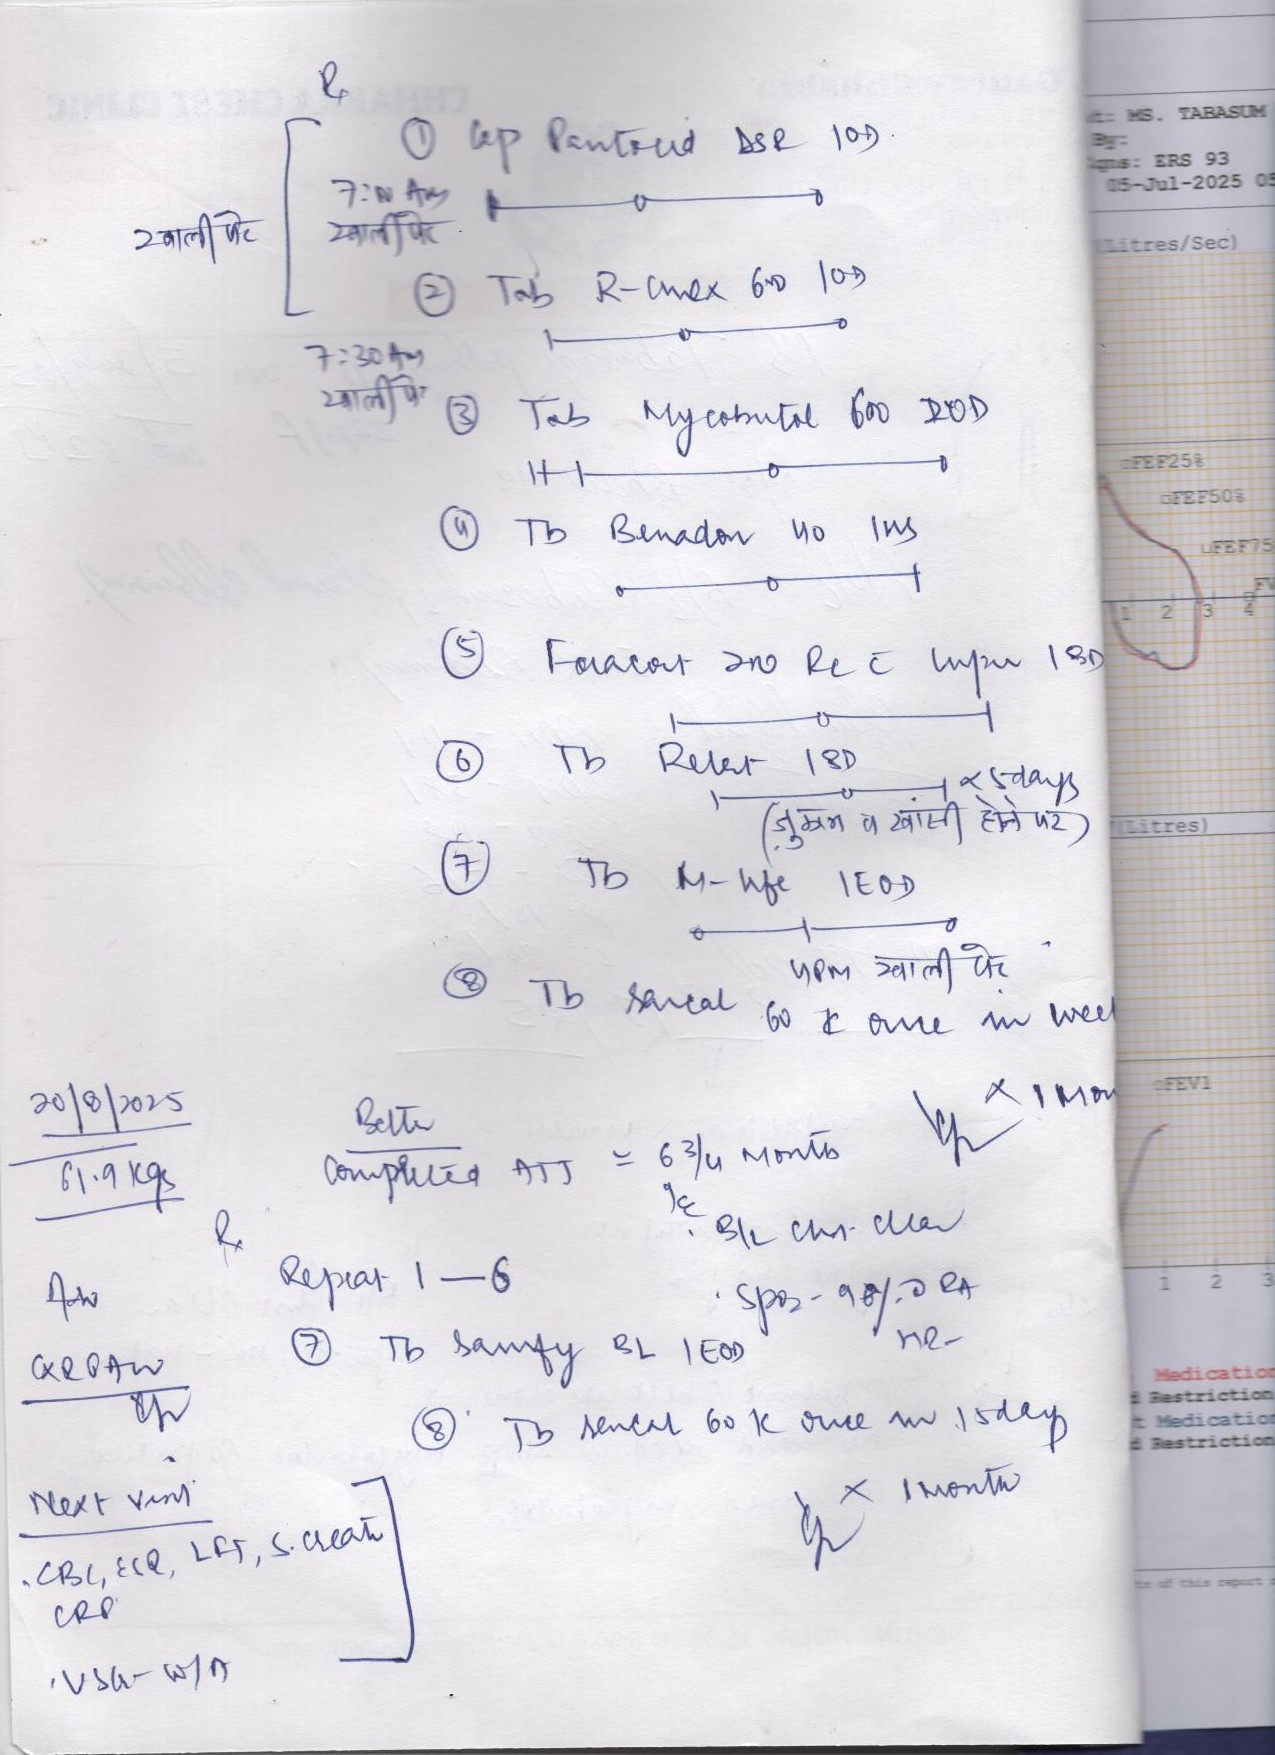 Rx
① Cap Pantocid DSR 1OD
7:00 Am
खाली पेट
खाली पेट
② Tab R-Cinex 600 1OD
7:30 Am
खाली पेट
③ Tab Mycobutol 600 2OD
④ Tb Benadon 40 1HS
⑤ Foracort 200 Rc c 1BD
⑥ Tb Relent 1BD
x 5 days
(जुकाम व खांसी होने पर)
⑦ Tb M-life 1EOD
4PM खाली पेट
⑧ Tb 60 K once in week
x 1 Mon
20/8/2025
61.9 Kgs
Better
Completed ATT = 6 3/4 Months
B/L Chest- Clear
Rx
Repeat 1 — 6
SpO2 - 98% RA
HR-
Adv
CXR PAW
⑦ Tb BL 1EOD
⑧ Tb 60 K once in 15 days
x 1 Month
Next Visit
. CBC, ESR, LFT, S. Creatn
CRP
. USG- W/A
t: MS. TABASUM
By:
gns: ERS 93
05-Jul-2025 05
(Litres/Sec)
FEF25%
FEF50%
FEF75
FV
1 2 3 4
(Litres)
FEV1
1 2 3
Medication
d Restriction
t Medication
d Restriction
of this report